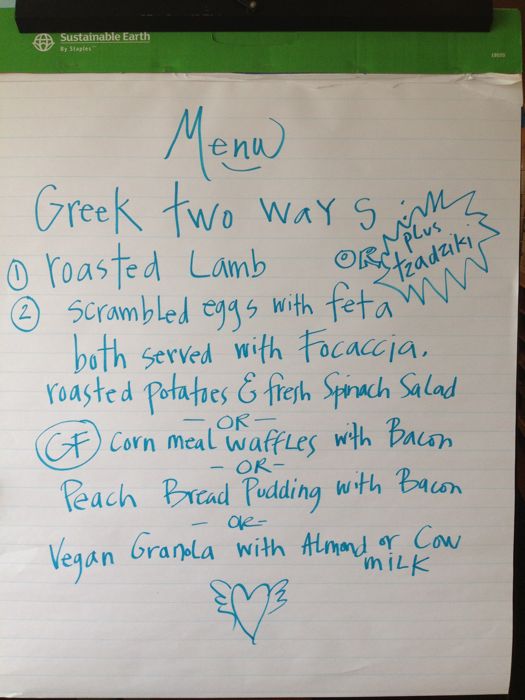 Sustainable Earth
By Staples™
Menu
Greek two ways:
① roasted Lamb OR
plus
tzadziki
② scrambled eggs with feta
both served with Focaccia,
roasted potatoes & fresh Spinach Salad
— OR —
GF Corn meal waffles with Bacon
- OR -
Peach Bread Pudding with Bacon
— OR —
Vegan Granola with Almond or Cow
milk